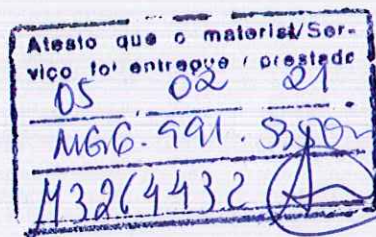 Atesto que o material/Ser-
viço foi entregue / prestado
05 02 21
MG6.991.
M3264432